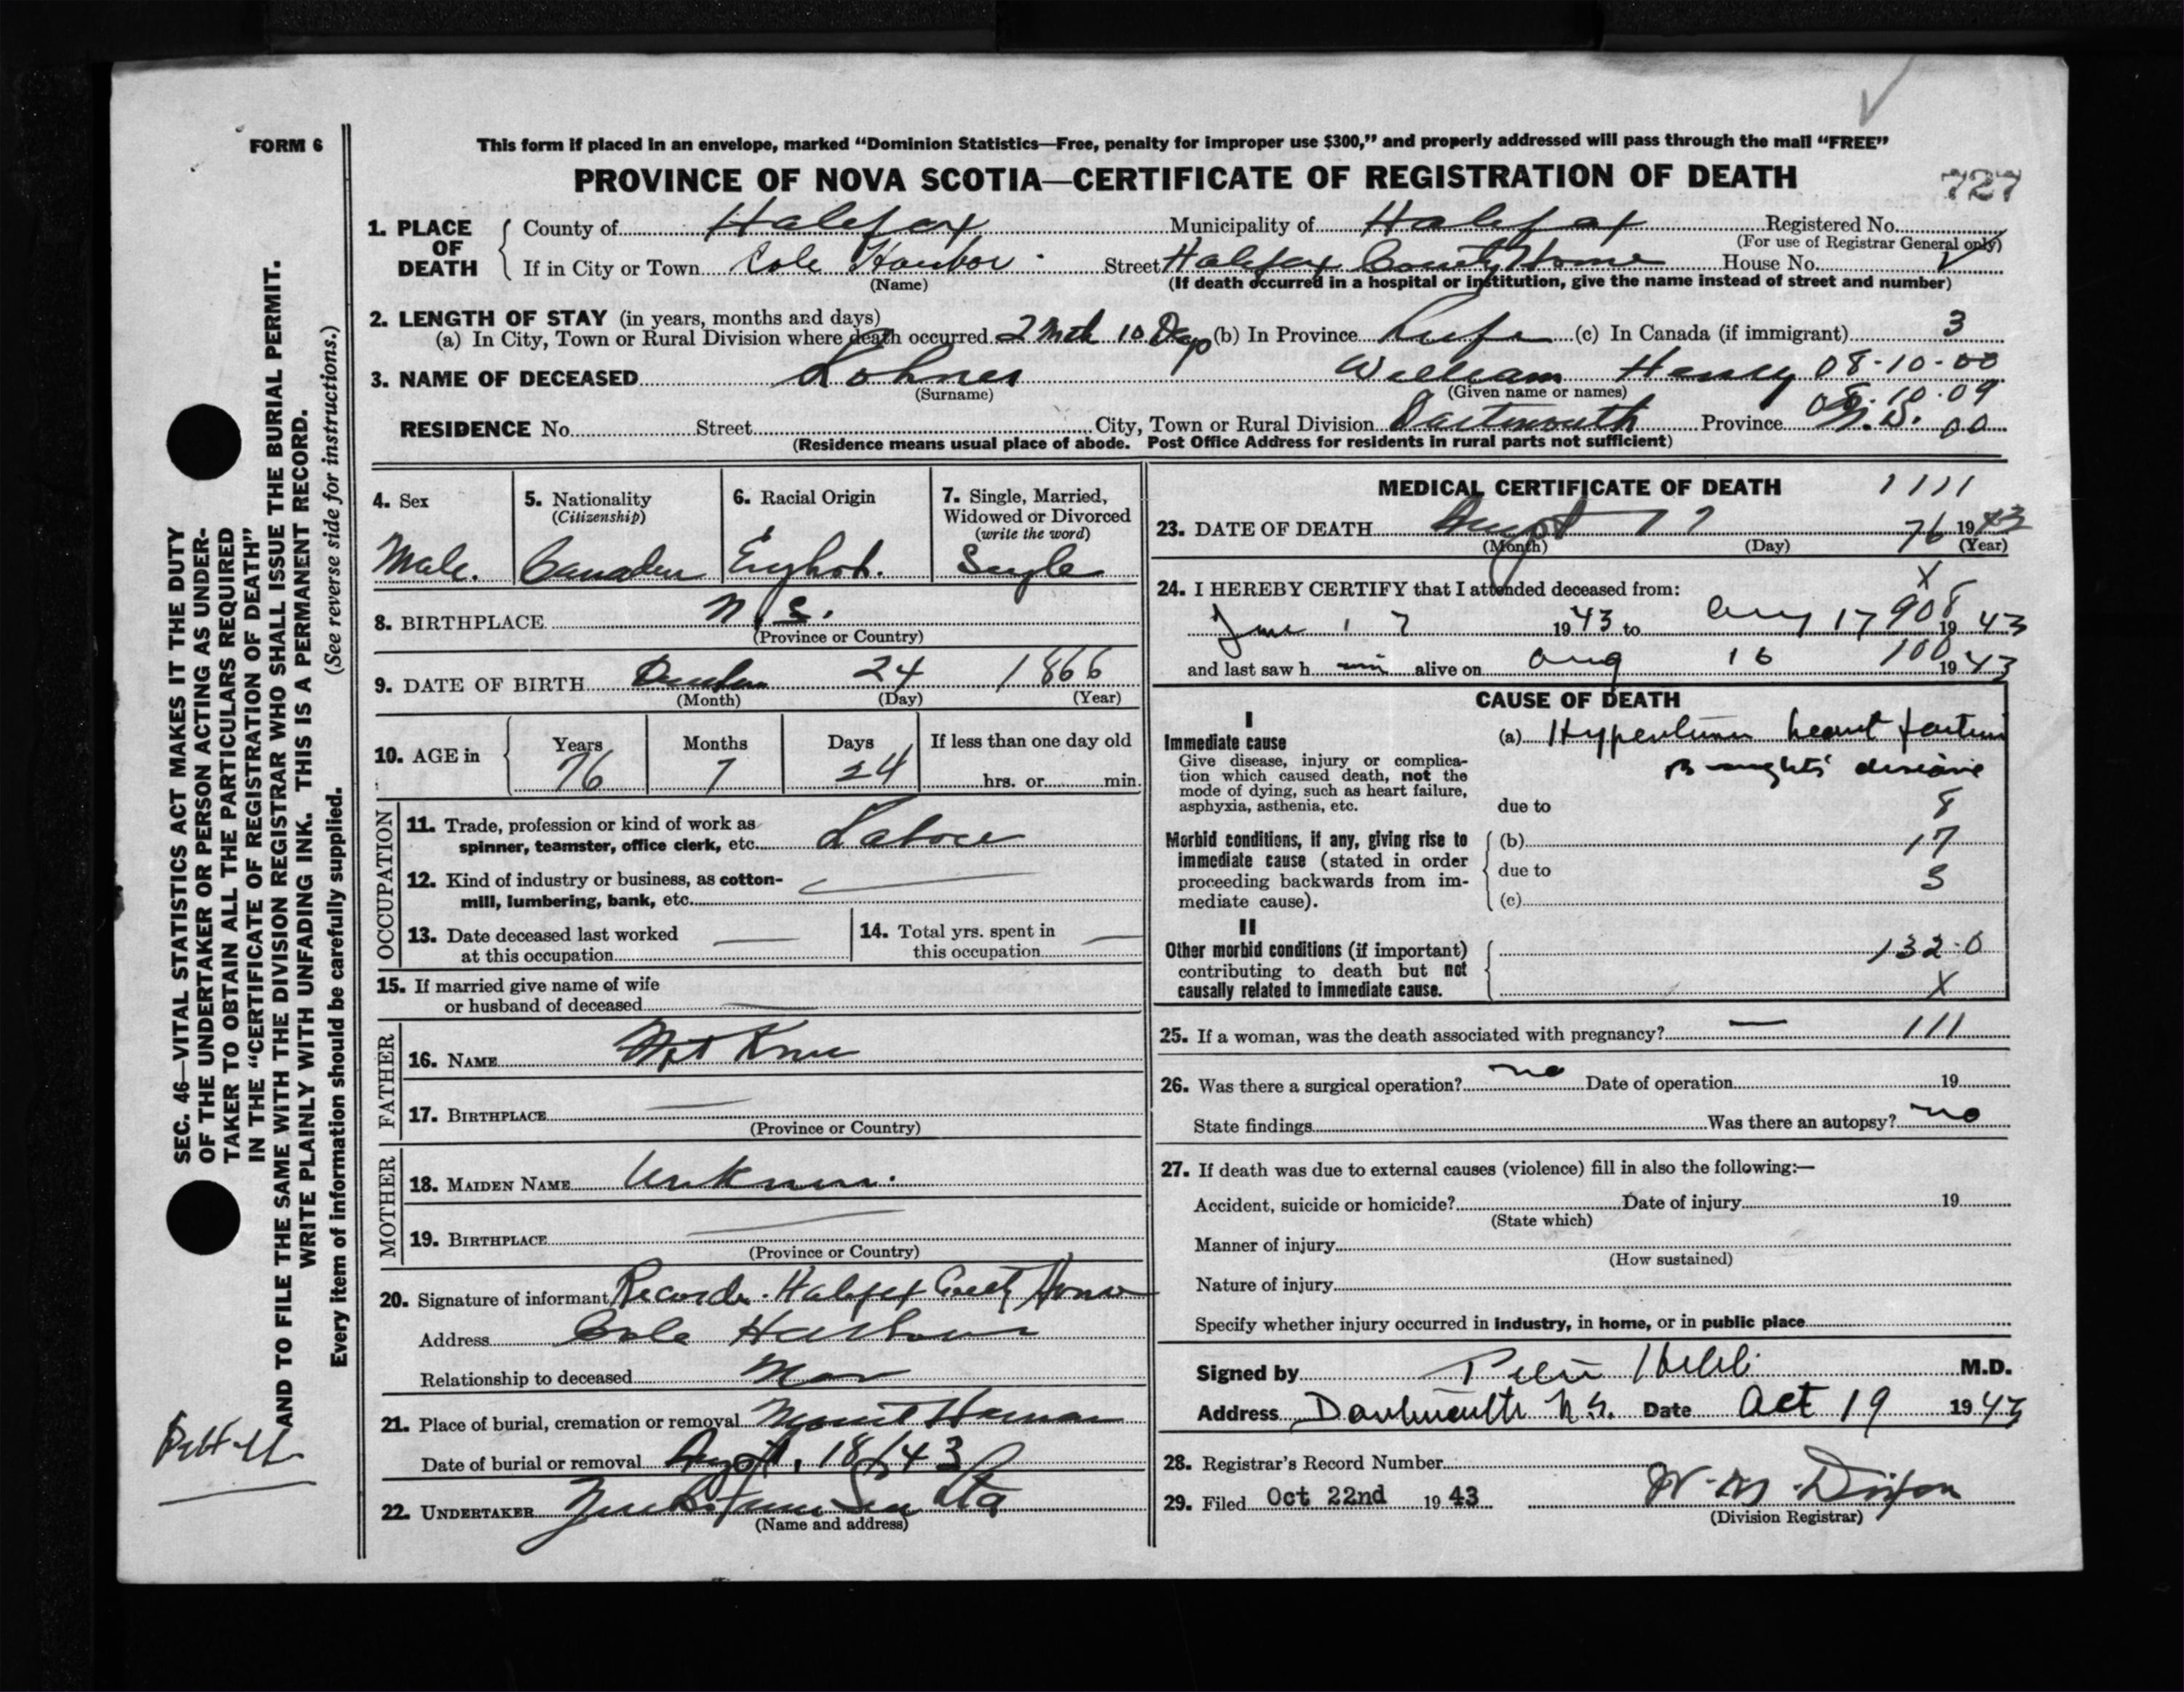 FORM 6
This form if placed in an envelope, marked “Dominion Statistics—Free, penalty for improper use $300,” and properly addressed will pass through the mail “FREE”
PROVINCE OF NOVA SCOTIA—CERTIFICATE OF REGISTRATION OF DEATH
727
1. PLACE OF DEATH
County of Halifax Municipality of Halifax Registered No.
(For use of Registrar General only)
If in City or Town Cole Harbor Street Halifax County Home House No.
(Name) (If death occurred in a hospital or institution, give the name instead of street and number)
2. LENGTH OF STAY (in years, months and days)
(a) In City, Town or Rural Division where death occurred 2 Mth 10 Days (b) In Province Life (c) In Canada (if immigrant) 3
3. NAME OF DECEASED Lohnes William Henry 08-10-00
(Surname) (Given name or names) 08-10-09
RESIDENCE No. Street City, Town or Rural Division Dartmouth Province N.S. 00
(Residence means usual place of abode. Post Office Address for residents in rural parts not sufficient)
4. Sex
Male.
5. Nationality
(Citizenship)
Canadian
6. Racial Origin
English.
7. Single, Married,
Widowed or Divorced
(write the word)
Single
8. BIRTHPLACE N.S.
(Province or Country)
9. DATE OF BIRTH December 24 1866
(Month) (Day) (Year)
10. AGE in
Years Months Days If less than one day old
76 7 24 hrs. or min.
OCCUPATION
11. Trade, profession or kind of work as
spinner, teamster, office clerk, etc.
12. Kind of industry or business, as cotton-
mill, lumbering, bank, etc.
13. Date deceased last worked
at this occupation
14. Total yrs. spent in
this occupation
15. If married give name of wife
or husband of deceased
FATHER
16. NAME Not Known
17. BIRTHPLACE
(Province or Country)
MOTHER
18. MAIDEN NAME Unknown.
19. BIRTHPLACE
(Province or Country)
20. Signature of informant Records. Halifax County Home
Address Cole Harbour
Relationship to deceased
21. Place of burial, cremation or removal Mount Herman
Date of burial or removal August. 18/43
22. UNDERTAKER
(Name and address)
MEDICAL CERTIFICATE OF DEATH 1111
23. DATE OF DEATH August 17 76 1943
(Month) (Day) (Year)
24. I HEREBY CERTIFY that I attended deceased from: X
June 17 1943 to Aug 17 908 1943
and last saw h im alive on Aug 16 100 1943
CAUSE OF DEATH
I
Immediate cause
Give disease, injury or complica-
tion which caused death, not the
mode of dying, such as heart failure,
asphyxia, asthenia, etc.
(a) Hypertension heart failure
Bright's disease
due to 8
Morbid conditions, if any, giving rise to
immediate cause (stated in order
proceeding backwards from im-
mediate cause).
(b) 17
due to 3
(c)
II
Other morbid conditions (if important)
contributing to death but not
causally related to immediate cause.
132.0
X
25. If a woman, was the death associated with pregnancy? — 111
26. Was there a surgical operation? no Date of operation 19
State findings Was there an autopsy? no
27. If death was due to external causes (violence) fill in also the following:—
Accident, suicide or homicide? Date of injury 19
(State which)
Manner of injury
(How sustained)
Nature of injury
Specify whether injury occurred in industry, in home, or in public place
Signed by M.D.
Address Dartmouth N.S. Date Oct 19 1943
28. Registrar's Record Number
29. Filed Oct 22nd 1943 W. M. Dixon
(Division Registrar)
SEC. 46—VITAL STATISTICS ACT MAKES IT THE DUTY
OF THE UNDERTAKER OR PERSON ACTING AS UNDER-
TAKER TO OBTAIN ALL THE PARTICULARS REQUIRED
IN THE “CERTIFICATE OF REGISTRATION OF DEATH”
AND TO FILE THE SAME WITH THE DIVISION REGISTRAR WHO SHALL ISSUE THE BURIAL PERMIT.
WRITE PLAINLY WITH UNFADING INK. THIS IS A PERMANENT RECORD.
Every item of information should be carefully supplied. (See reverse side for instructions.)